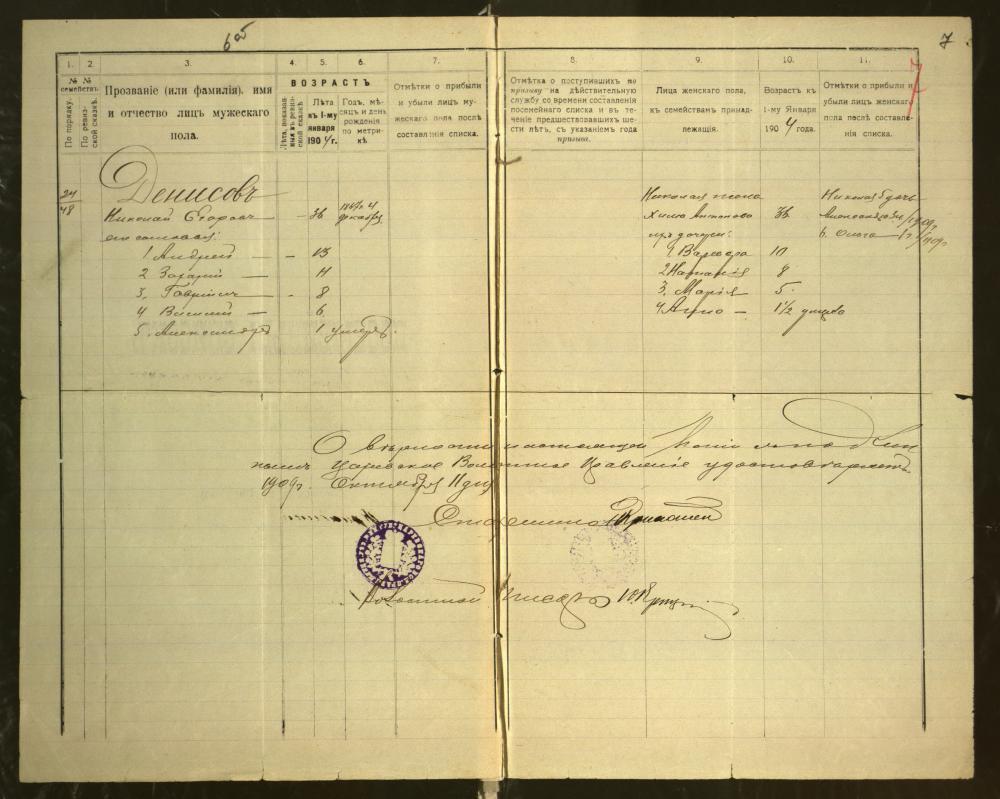 6об
7
7
1.
2.
3.
4.
5.
6.
7.
8.
9.
10.
11.
№ № семействъ.
По порядку.
По ревизской сказкѣ.
Прозваніе (или фамилія), имя
и отчество лицъ мужескаго
пола.
ВОЗРАСТЪ
Лѣта, показанныя въ ревизской сказкѣ
Лѣта
къ 1-му
января
1904 г.
Годъ, мѣсяцъ и день
рожденія
по метрикѣ
Отмѣтки о прибыли
и убыли лицъ мужескаго пола послѣ
составленія списка.
Отмѣтка о поступившихъ по
призыву на дѣйствительную
службу со времени составленія
посемейнаго списка и въ теченіе предшествовавшихъ шести лѣтъ, съ указаніемъ года
призыва.
Лица женскаго пола,
къ семействамъ принадлежащія.
Возрастъ къ
1-му Января
1904 года.
Отмѣтки о прибыли и
убыли лицъ женскаго
пола послѣ составленія списка.
24
48
Денисовъ
Николай Егоровъ — 36
декабря
его сыновья:
1 Андрей — 13
2 Захарій — 11
3. Гаврилъ — 8
4 Василій — 6
5. Александръ 1 умеръ.
Николая жена
36
ихъ дочери:
1. Варвара 10
8
3. Марія 5
4 Анна — 1½ умерла
Николая 5 дочь
6. Ольга
О вѣрности настоящей копіи съ подлиннымъ
Царевское Волостное Правленіе удостовѣряетъ
1909 г. Октября 11 дня
Старшина
Волостной Писарь